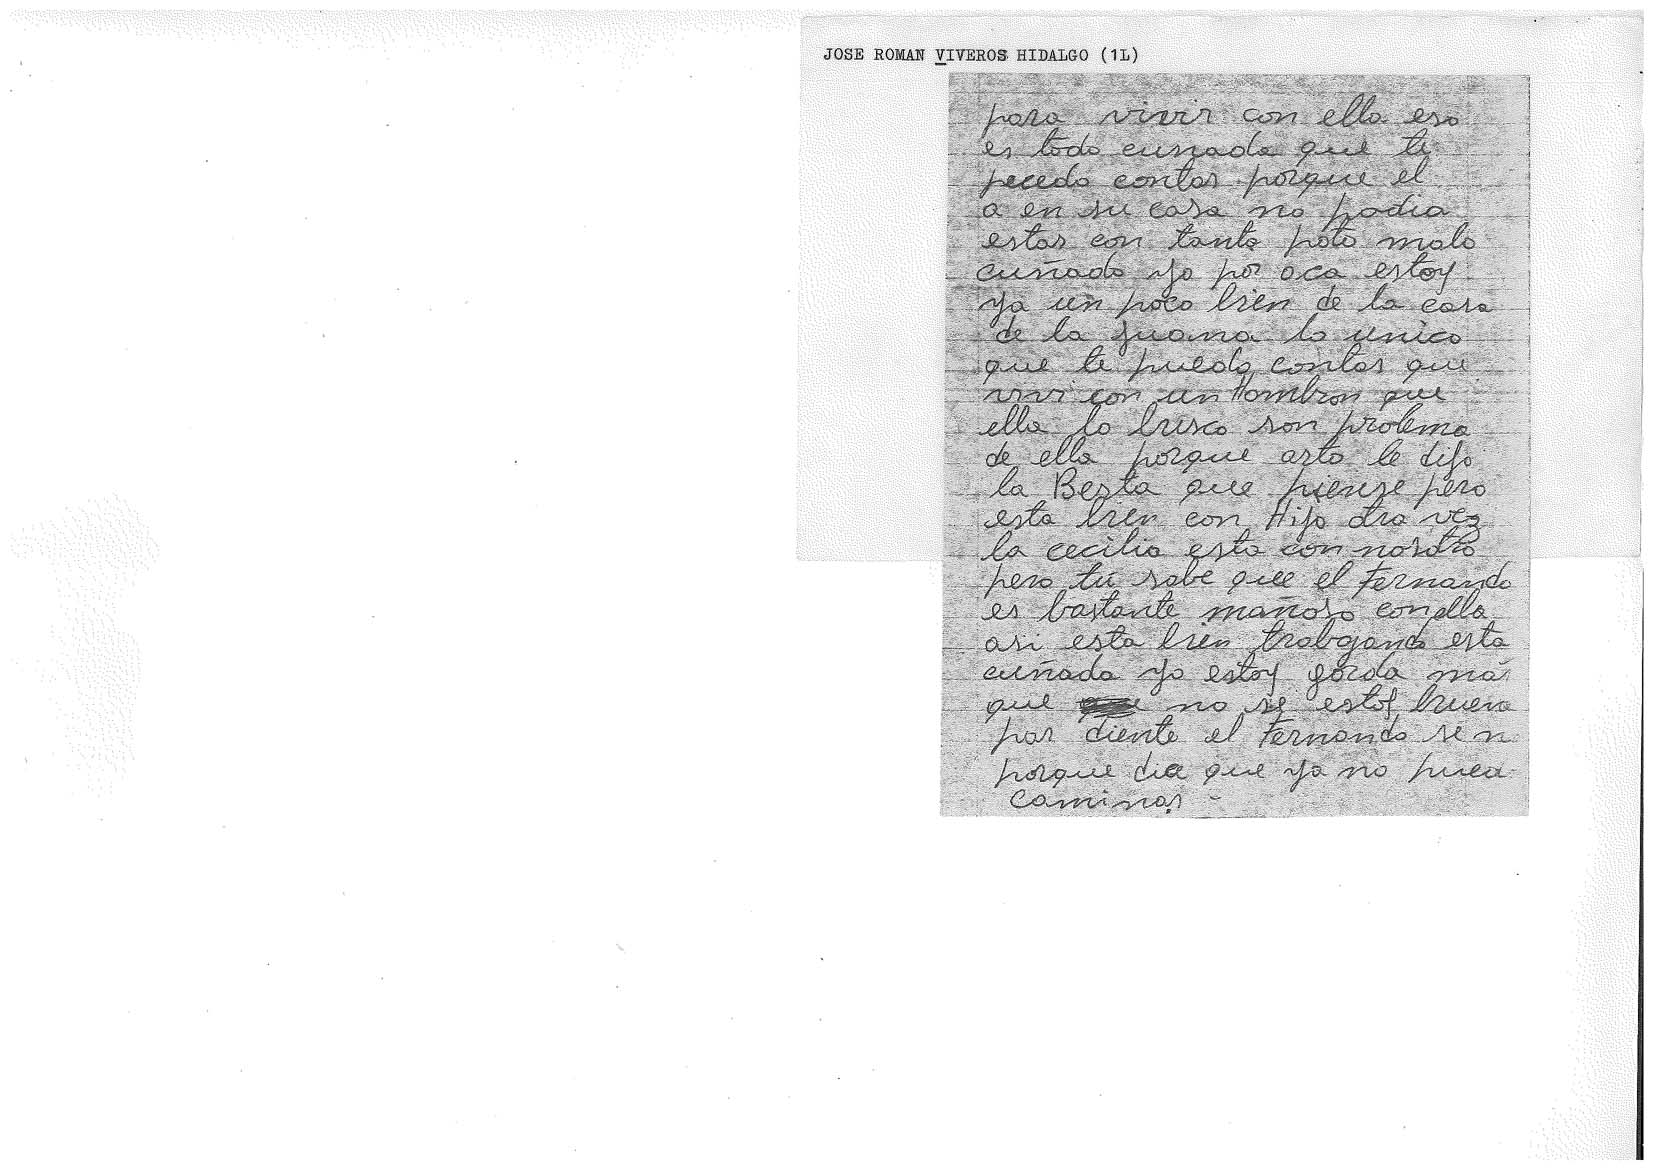 JOSE ROMAN VIVEROS HIDALGO (1L)
para vivir con ella eso
es todo cunada que te
pecedo contar porque el
a en su casa no podia
estar con tanto poto malo
cuñado yo por aca estoy
ya un poco bien de la casa
de la Juana lo unico
que te puedo contar que
vivi con un Hombron que
ella lo busco son prolema
de ella porque arto le dijo
la Berta que piense pero
esta bien con Hijo otra vez
la cecilia esta con nosotro
pero tú sabe que el Fernando
es bastante mañoso con ella
asi esta bien trabgando esta
cuñada yo estoy gorda má
que no se estoy buena
par diente el Fernando se n
porque dia que ya no puea
caminar -